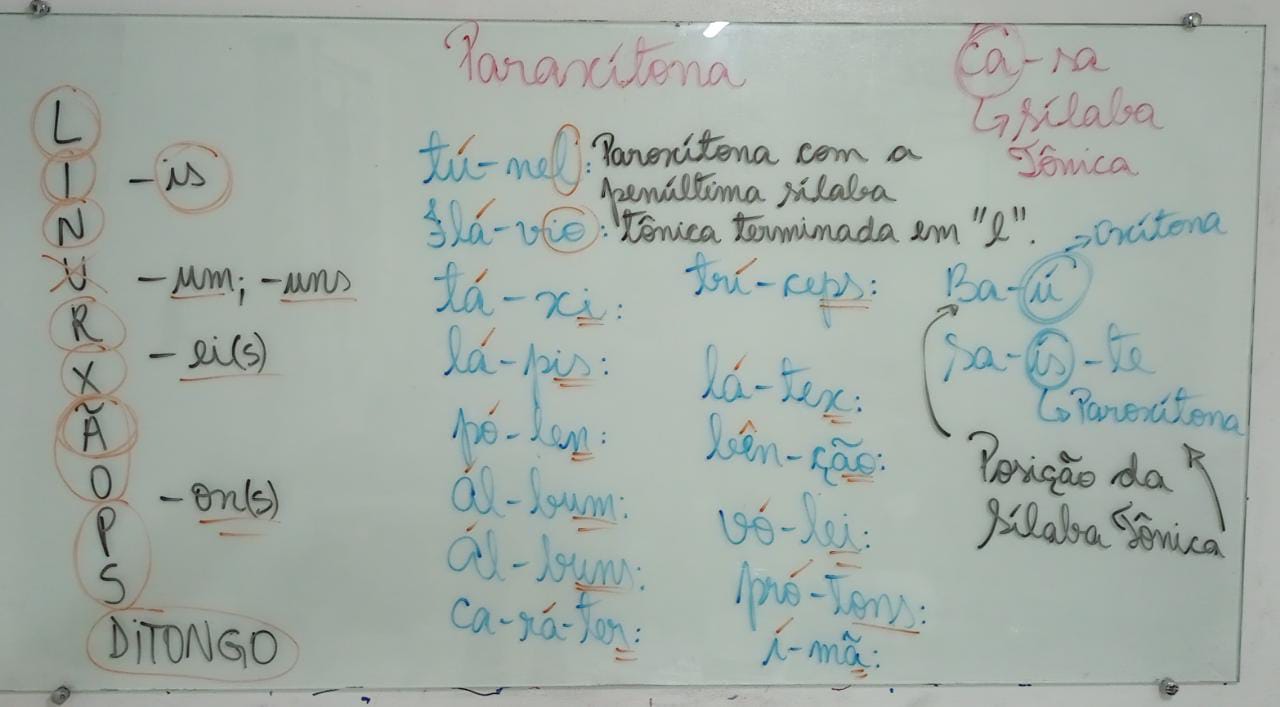 Paroxítona
L
I - is
N
U - um; - uns
R
- ei(s)
X
Ã
O
- on(s)
P
S
DITONGO
tú-nel: Paroxítona com a
penúltima sílaba
tônica terminada em "l".
Flá-vio:
tá-xi:
lá-pis:
pó-len:
ál-bum:
ál-buns:
ca-rá-ter:
trí-ceps:
lá-tex:
bên-ção:
vó-lei:
pró-tons:
í-mã:
Ca-sa
↳ sílaba
Tônica
→ oxítona
Ba-ú
Fa-ís-te
↳ Paroxítona
Posição da
Sílaba Tônica